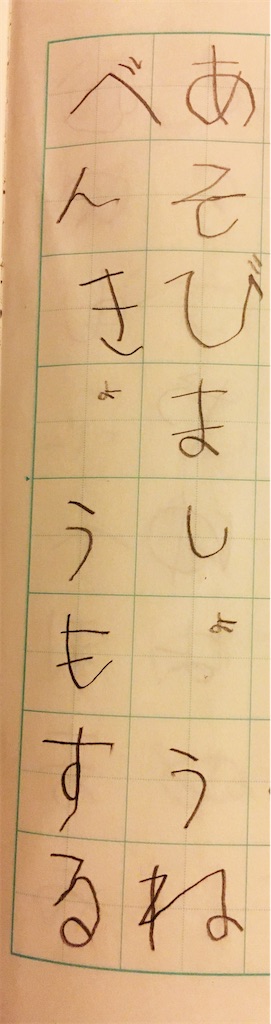 あそびましょうね
べんきょうもする